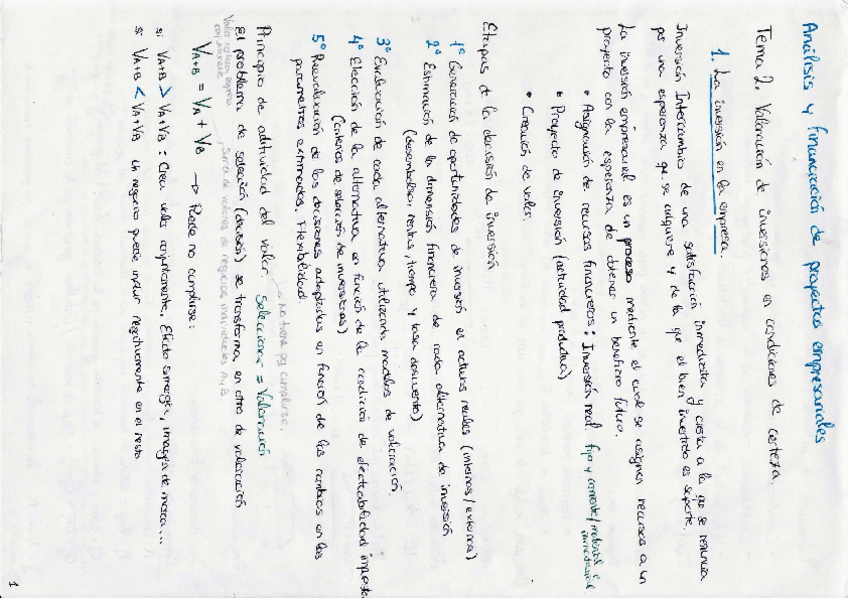 Análisis y financiación de proyectos empresariales
Tema 2. Valoración de inversiones en condiciones de certeza.
1. La inversión en la empresa.
Inversión Intercambio de una satisfacción inmediata y cierta a la que se renuncia
por una esperanza que se adquiere y de la que el bien invertido es soporte.
La inversión empresarial es un proceso mediante el cual se asignan recursos a un
proyecto con la esperanza de obtener un beneficio futuro.
• Asignación de recursos financieros: Inversión real fijo y corriente/material e
inmaterial
• Proyecto de inversión (actividad productiva)
• Creación de valor.
Etapas de la decisión de inversión
1º Generación de oportunidades de inversión en activos reales (internas/externas)
2º Estimación de la dimensión financiera de cada alternativa de inversión
(desembolso, rentas, tiempo y tasa descuento)
3º Evaluación de cada alternativa utilizando modelos de valoración.
4º Elección de la alternativa en función de la condición de efectuabilidad impuesta
(criterios de selección de inversiones)
5º Reevaluación de las decisiones adoptadas en función de los cambios en los
parámetros estimados. Flexibilidad
→ No tiene pq cumplirse.
Principio de aditividad del valor. Seleccionar = Valoración
El problema de selección (decisión) se transforma en otro de valoración
Valor
conjuntamente
suma de valores de negocios individuales A y B
VA+B = VA + VB → Puede no cumplirse:
si VA+B > VA+VB : Crea valor conjuntamente, Efecto sinergia, imagen de marca...
si VA+B < VA+VB Un negocio puede influir negativamente en el resto
1